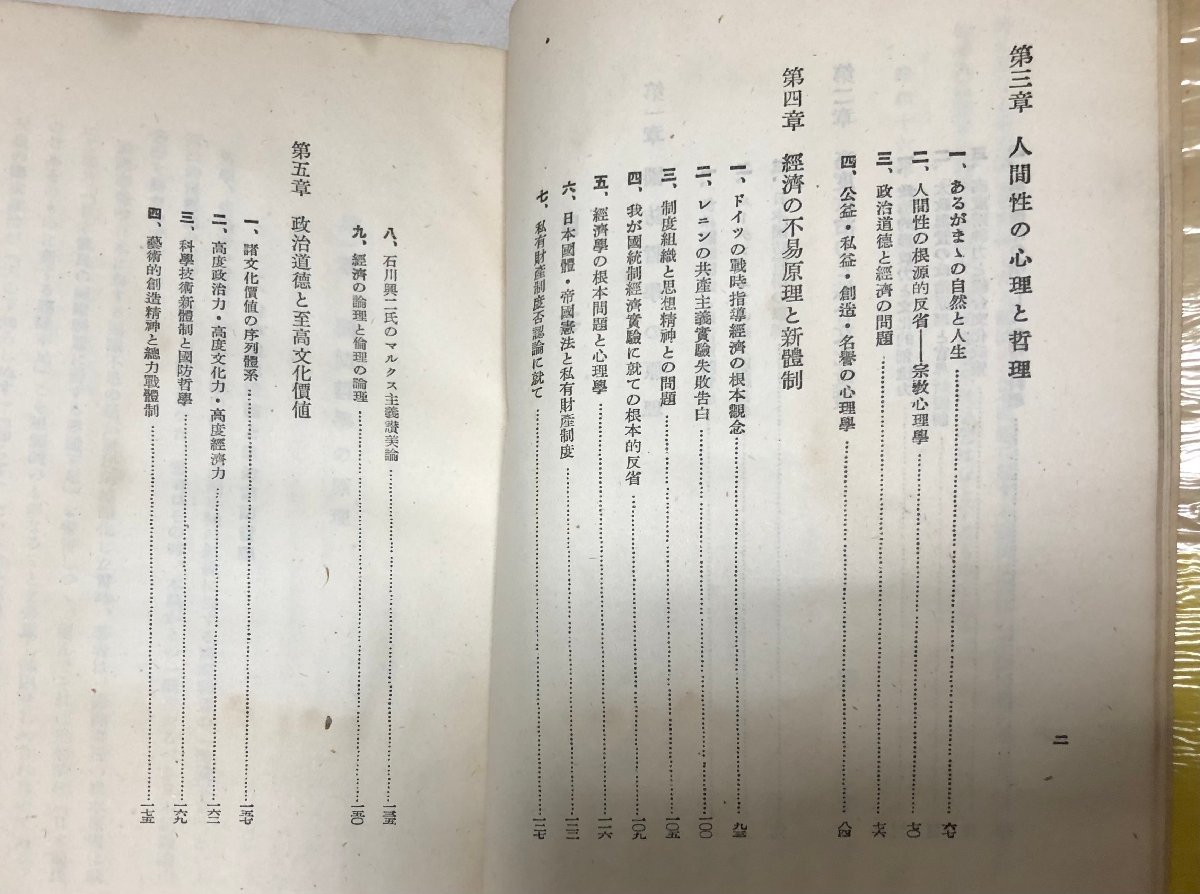 第三章 人間性の心理と哲理
一、あるがまゝの自然と人生……六七
二、人間性の根源的反省――宗教心理學……七〇
三、政治道德と經濟の問題……七六
四、公益・私益・創造・名譽の心理學……八四
第四章 經濟の不易原理と新體制
一、ドイツの戰時指導經濟の根本觀念……九三
二、レニンの共產主義實驗失敗告白……一〇〇
三、制度組織と思想精神との問題……一〇五
四、我が國統制經濟實驗に就ての根本的反省……一〇九
五、經濟學の根本問題と心理學……一一六
六、日本國體・帝國憲法と私有財產制度……一二二
七、私有財產制度否認論に就て……一二七
二
八、石川興二氏のマルクス主義讃美論……一三五
九、經濟の論理と倫理の論理……一五〇
第五章 政治道德と至高文化價値
一、諸文化價値の序列體系……一五七
二、高度政治力・高度文化力・高度經濟力……一六二
三、科學技術新體制と國防哲學……一六九
四、藝術的創造精神と總力戰體制……一七五